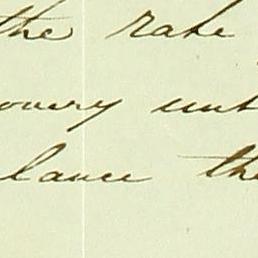 the rate
overy unt
lance the